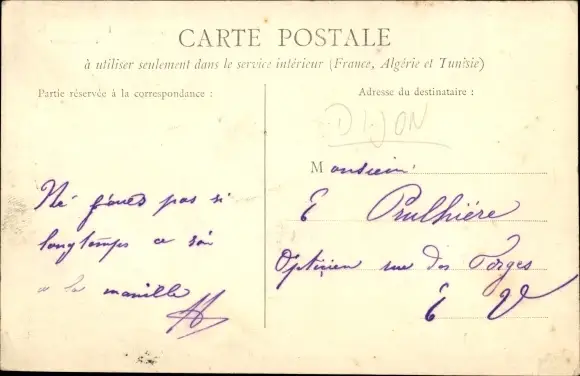 CARTE POSTALE
à utiliser seulement dans le service intérieur (France, Algérie et Tunisie)
Partie réservée à la correspondance :
Adresse du destinataire :
DIJON
Monsieur
E Prulhière
Opticien rue des Forges
E V
Ne joues pas si
longtemps ce soir
a la manille